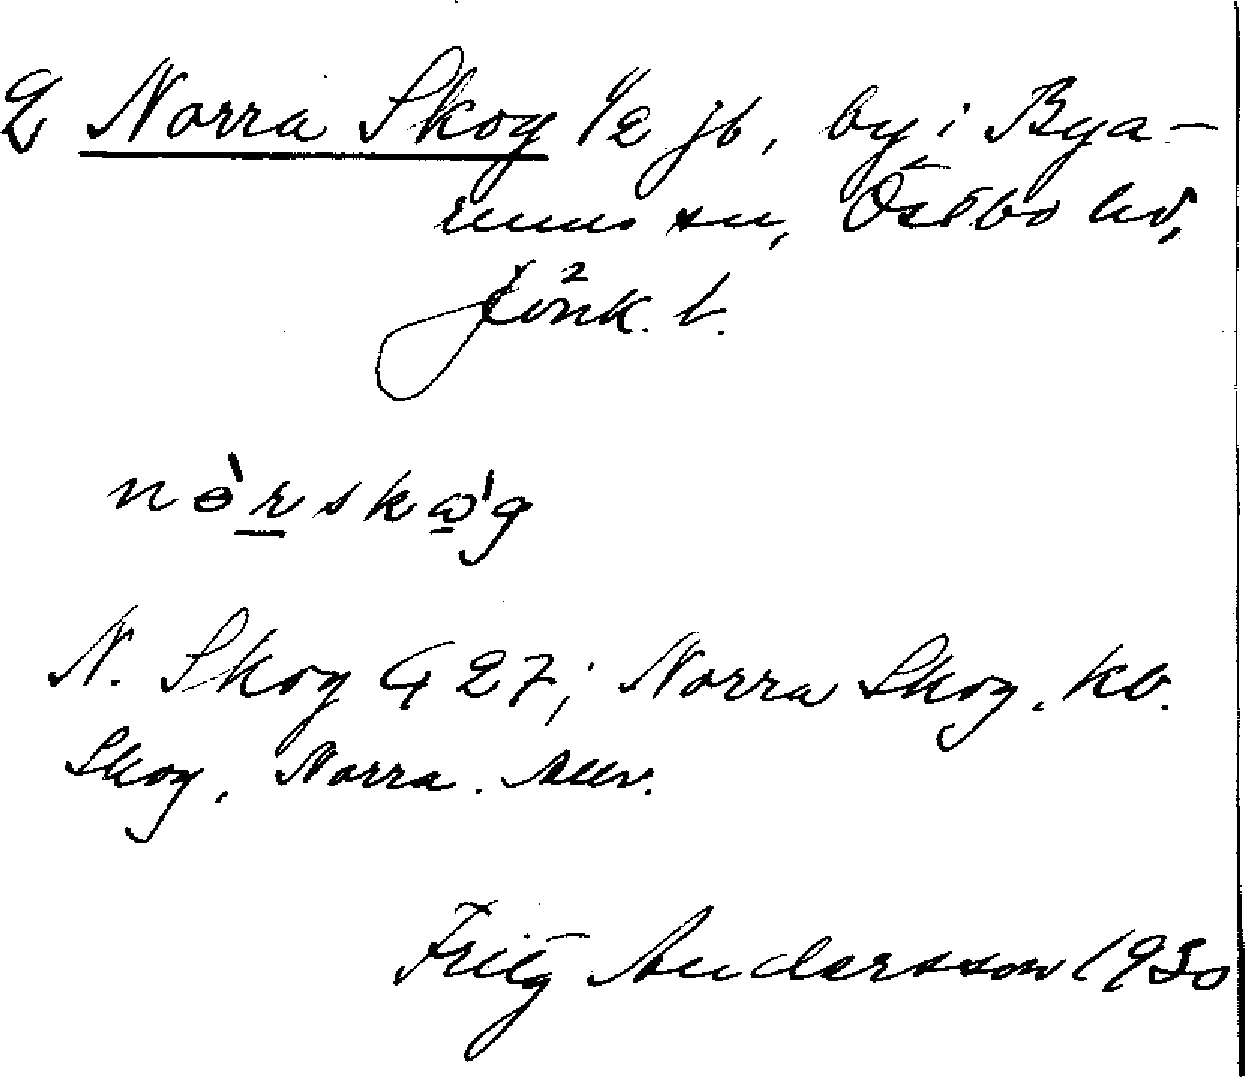 2 Norra Skog 1/2 jb, by i Bya-
rums sn, Östbo hd,
Jönk. l.
nɵ̀rskɷ̠'g
N. Skog G 27; Norra Skog. kb.
Skog, Norra.
Fritz Andersson 1930